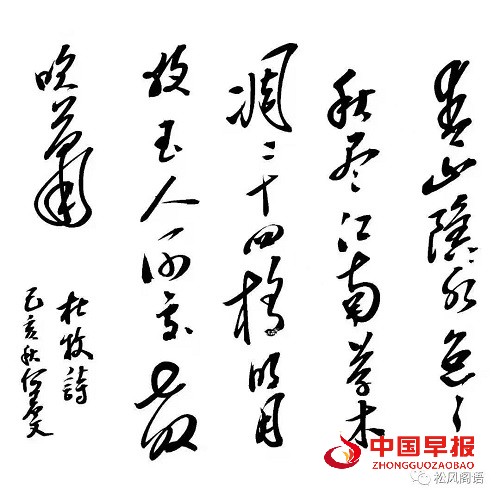 青山隱々水迢々
秋盡江南草木
凋二十四橋明月
夜玉人何處教
吹簫
杜牧詩
己亥秋何
中国早报
ZHONGGUOZAOBAO
松风阁语